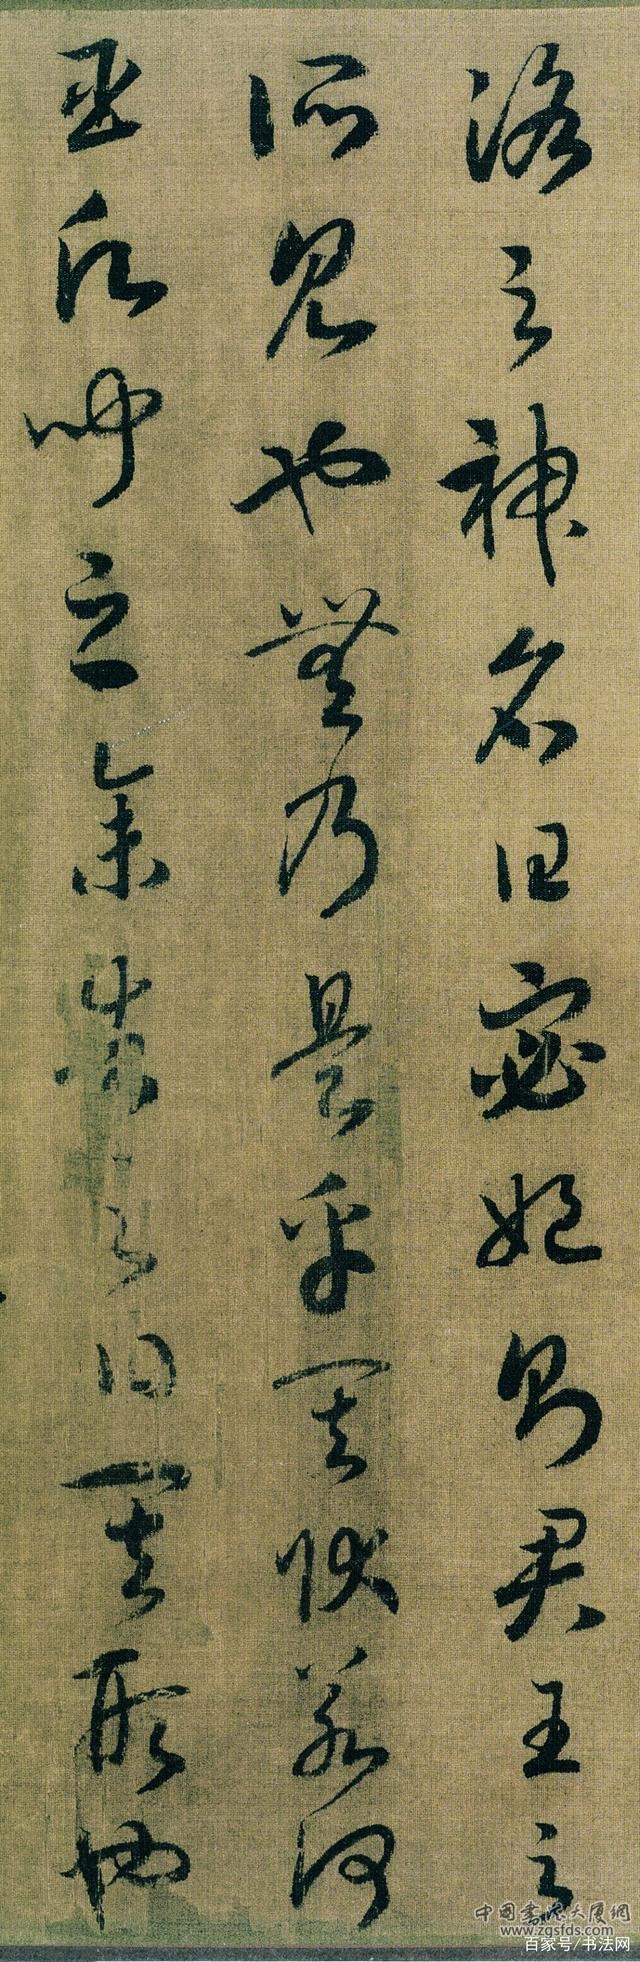 洛之神名曰宓妃則君王之
所見也無乃是乎其狀若何
臣願聞之余告之曰其形也
中國書法大廈網
www.zgsfds.com
百家号/书法网